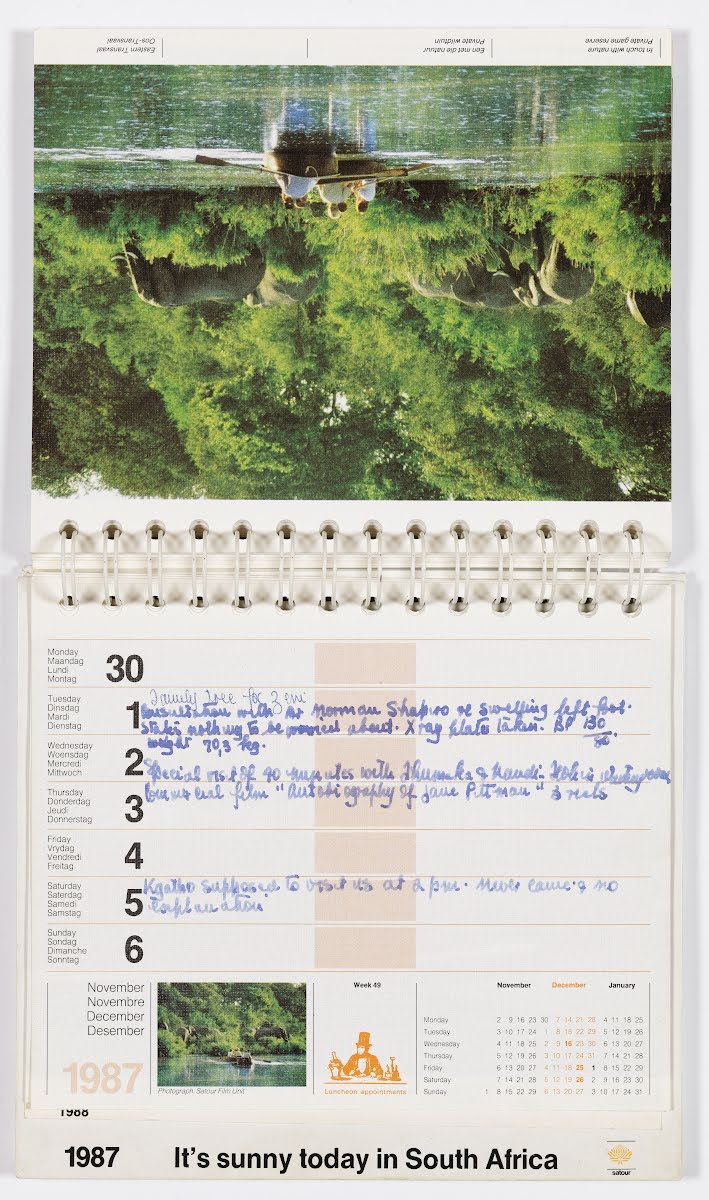 Eastern Transvaal
Oos-Transvaal
Een met die natuur
Private wildtuin
In touch with nature
Private game reserve
Monday
Maandag
Lundi
Montag
30
Tuesday
Dinsdag
Mardi
Dienstag
1
Family tree for Zeni
Consultation with Dr Norman Shapiro re swelling left foot.
States nothing to be worried about. X ray plates taken. BP 130/80.
weight 70,3 kg.
Wednesday
Woensdag
Mercredi
Mittwoch
2
Special visit of 40 minutes with Thumeka & Nandi.
Thursday
Donderdag
Jeudi
Donnerstag
3
Commercial film "Autobiography of Jane Pittman" 3 reels
Friday
Vrydag
Vendredi
Freitag
4
Saturday
Saterdag
Samedi
Samstag
5
Kgatho supposed to visit us at 2 pm. Never came & no
explanation
Sunday
Sondag
Dimanche
Sonntag
6
November
Novembre
December
Desember
1987
Photograph: Satour Film Unit
Week 49
Luncheon appointments
November December January
Monday 2 9 16 23 30 7 14 21 28 4 11 18 25
Tuesday 3 10 17 24 1 8 15 22 29 5 12 19 26
Wednesday 4 11 18 25 2 9 16 23 30 6 13 20 27
Thursday 5 12 19 26 3 10 17 24 31 7 14 21 28
Friday 6 13 20 27 4 11 18 25 1 8 15 22 29
Saturday 7 14 21 28 5 12 19 26 2 9 16 23 30
Sunday 1 8 15 22 29 6 13 20 27 3 10 17 24 31
1988
1987 It's sunny today in South Africa
satour